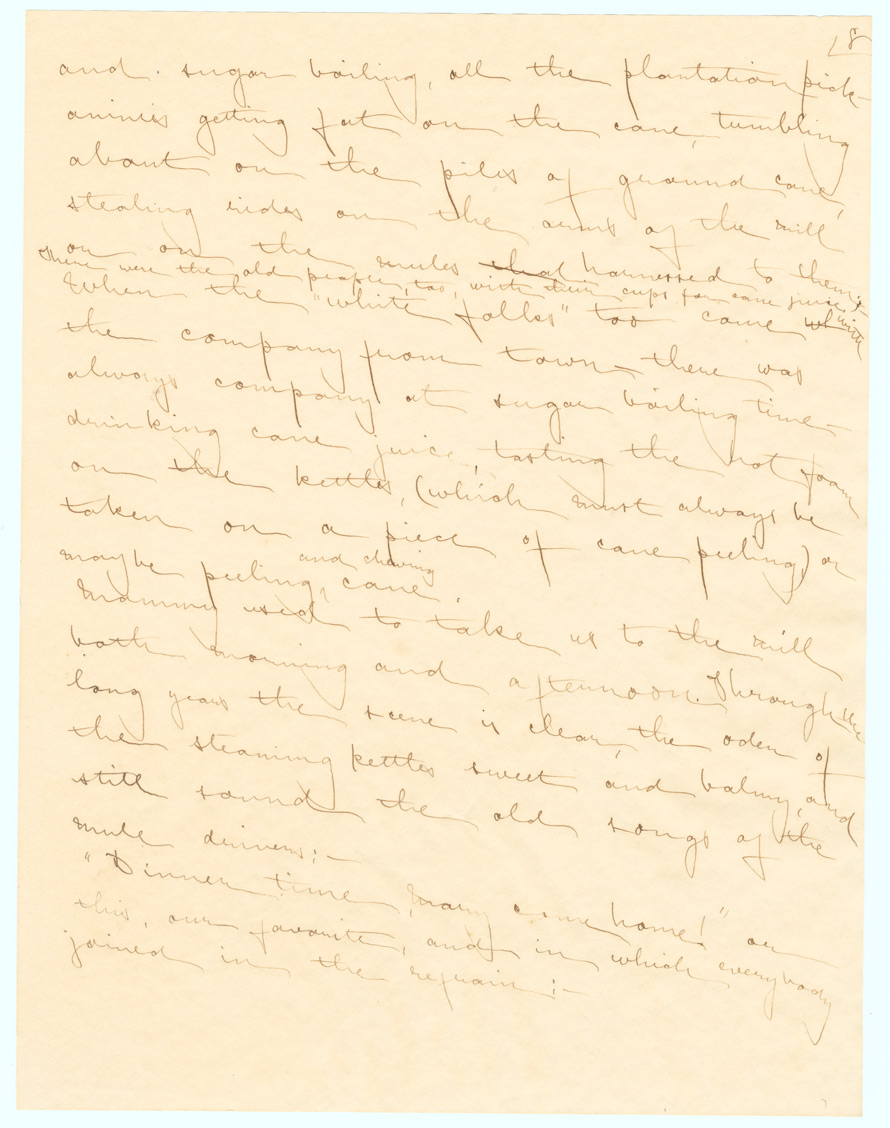 18
and sugar boiling, all the plantation pick-
aninies getting fat on the cane, tumbling
about on the piles of ground cane,
stealing rides on the arms of the mill
or on the mules that harnessed to them:-
There were the old people, too, with their cups for cane juice.-
When the "white folks" too came with
the company from town - there was
always company at sugar boiling time -
drinking cane juice, tasting the hot foam
on the kettles, (which must always be
taken on a piece of cane peeling) or
and chewing
maybe peeling, cane.
Mammy used to take us to the mill
both morning and afternoon. Through the
long years the scene is clear, the oder of
the steaming kettles sweet and balmy, and
still sound the old songs of the
mule drivers:-
"Dinner time, Mary come home!" or
this, our favorite, and in which everybody
joined in the refrain:-